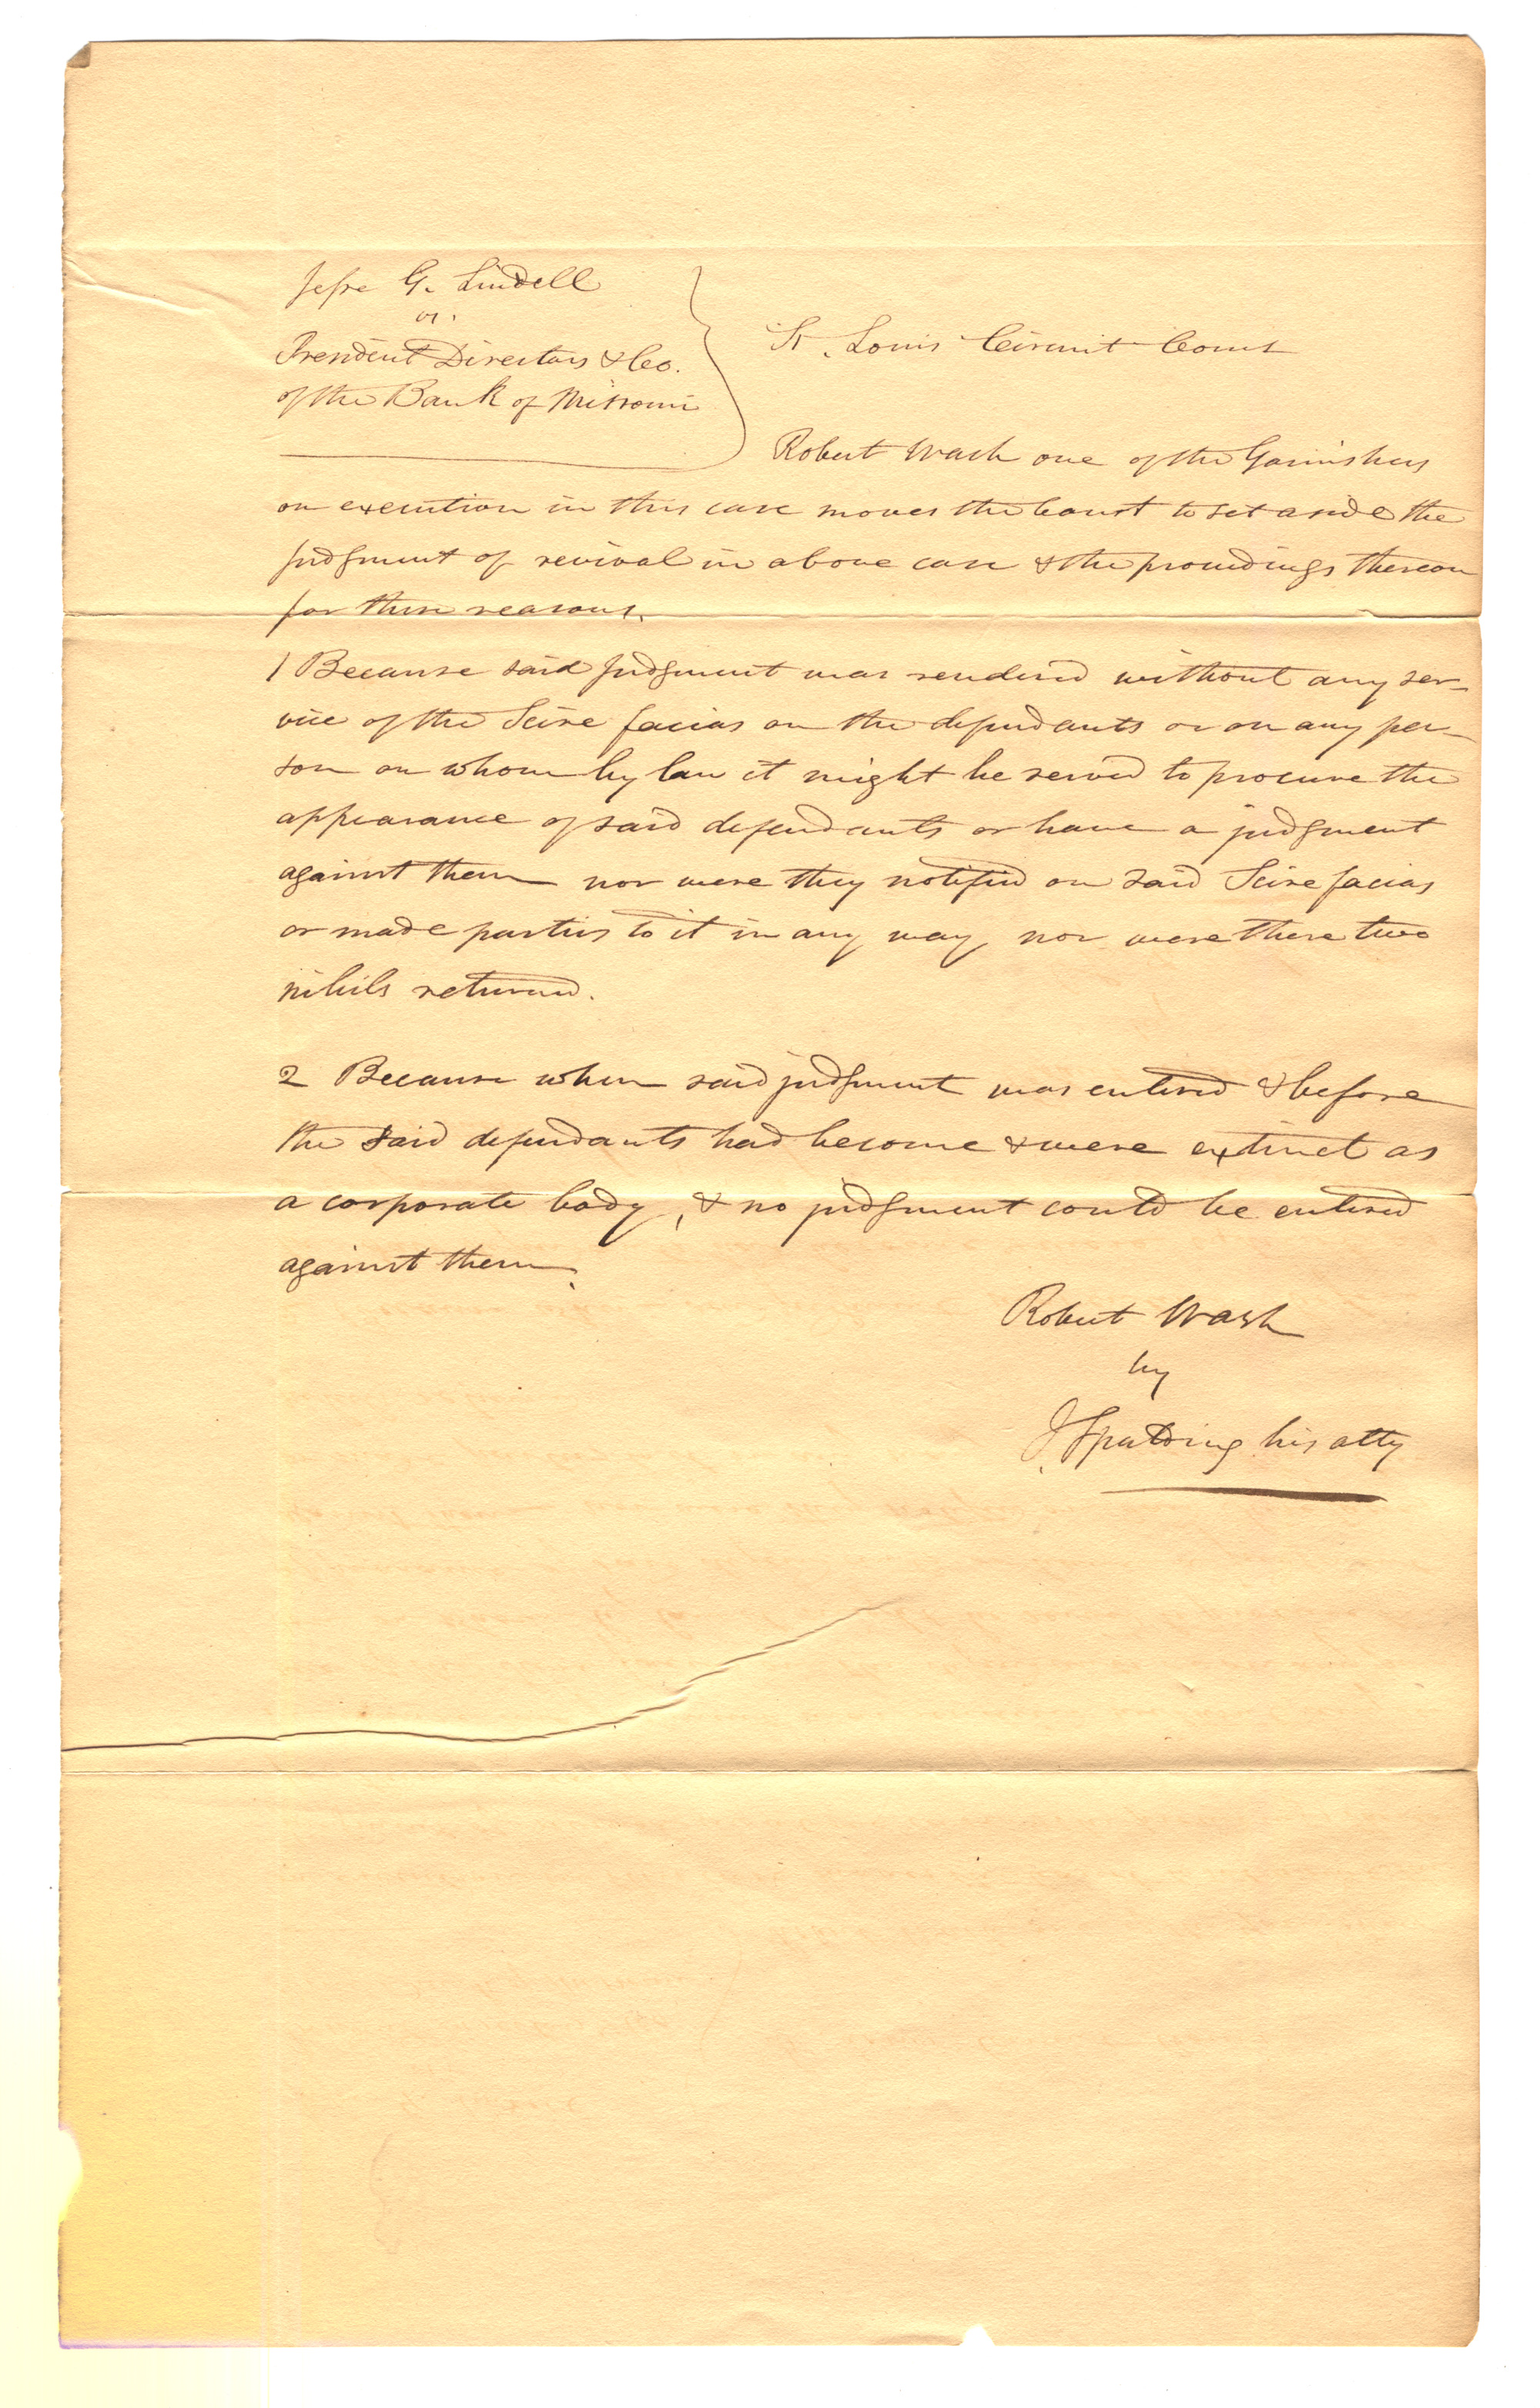 Jesse G. Lindell
vs.
President Directors & Co.
of the Bank of Missouri
St. Louis Circuit Court
Robert Wash one of the Garnishees
on execution in this case moves the Court to set aside the
judgment of revival in above case & the proceedings thereon
for these reasons.
1 Because said judgment was rendered without any ser-
vice of the Scire facias on the defendants or on any per-
son on whom by law it might be served to procure the
appearance of said defendants or have a judgment
against them nor were they notified on said Scire facias
or made parties to it in any way, nor were there two
nihils returned.
2 Because when said judgment was entered & before
the said defendants had become & were extinct as
a corporate body, & no judgment could be entered
against them.
Robert Wash
by
J. Spalding his atty